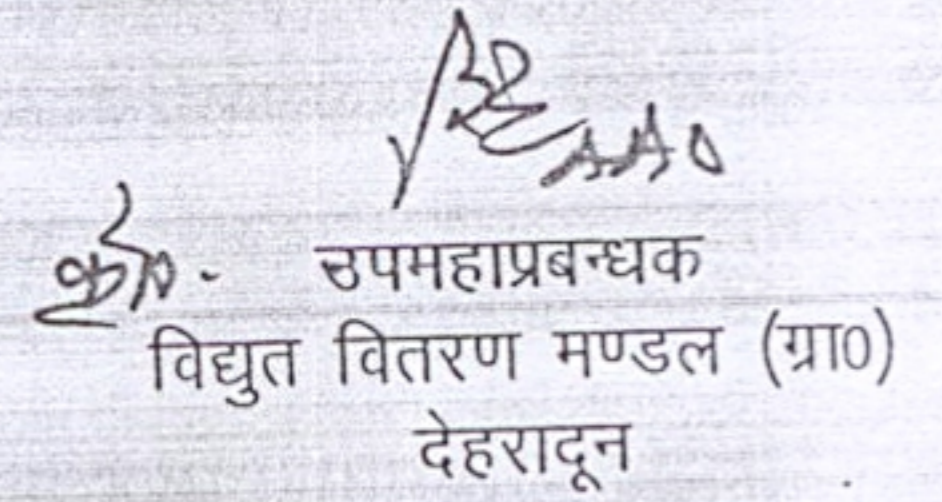 उपमहाप्रबन्धक
विद्युत वितरण मण्डल (ग्रा0)
देहरादून